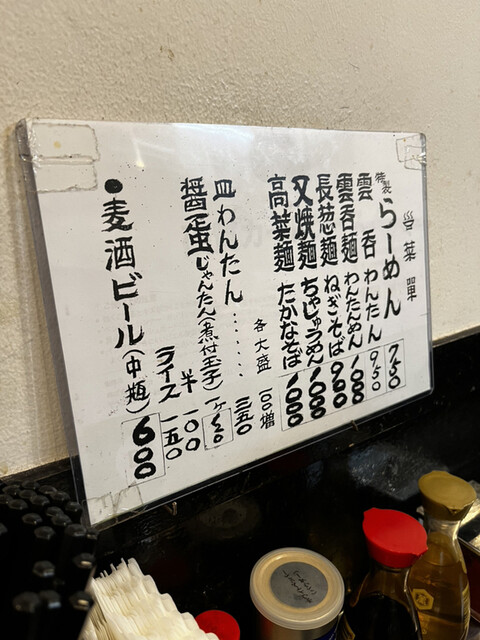 菜單
特製 らーめん 750
雲呑 わんたん 950
雲呑麺 わんたんめん
長葱麺 ねぎそば 900
叉焼麺 ちゃしゅうめん
高菜麺 たかなそば
各大盛 100増
皿わんたん・・・・・・ 350
醤蛋じゃんたん(煮付玉子) 一ヶ
半 100
ライス 150
●麦酒ビール(中瓶) 600